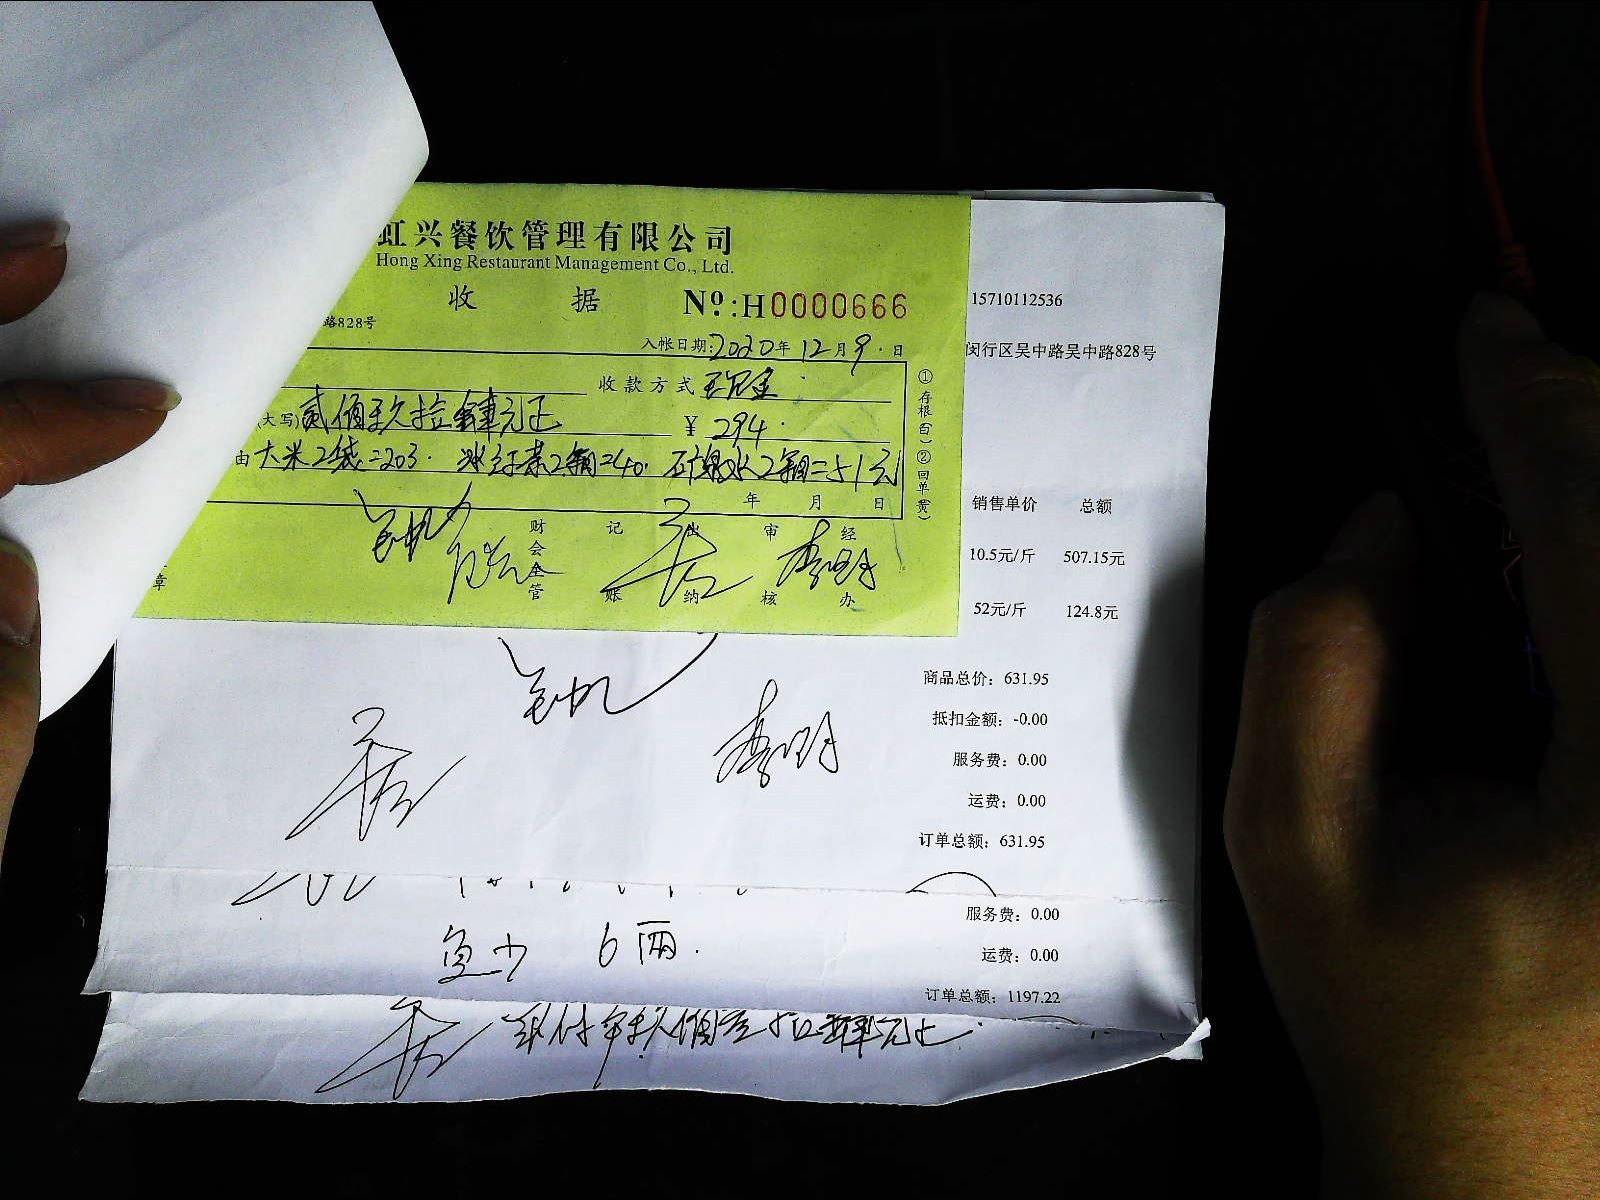 虹兴餐饮管理有限公司
Hong Xing Restaurant Management Co., Ltd.
收 据 Nº:H0000666
路828号
入帐日期:2020年12月9日
收款方式 现金
(大写)贰佰玖拾肆元正 ¥294.
由 大米2袋=203. 冰红茶2箱=40. 矿泉水2箱=51元
年 月 日
财会主管 记账 出纳 审核 经办
李明
章
①存根(白)②回单(黄)
15710112536
闵行区吴中路吴中路828号
销售单价 总额
10.5元/斤 507.15元
52元/斤 124.8元
商品总价：631.95
抵扣金额：-0.00
服务费：0.00
运费：0.00
订单总额：631.95
李明
服务费：0.00
鱼少 6两.
运费：0.00
订单总额：1197.22